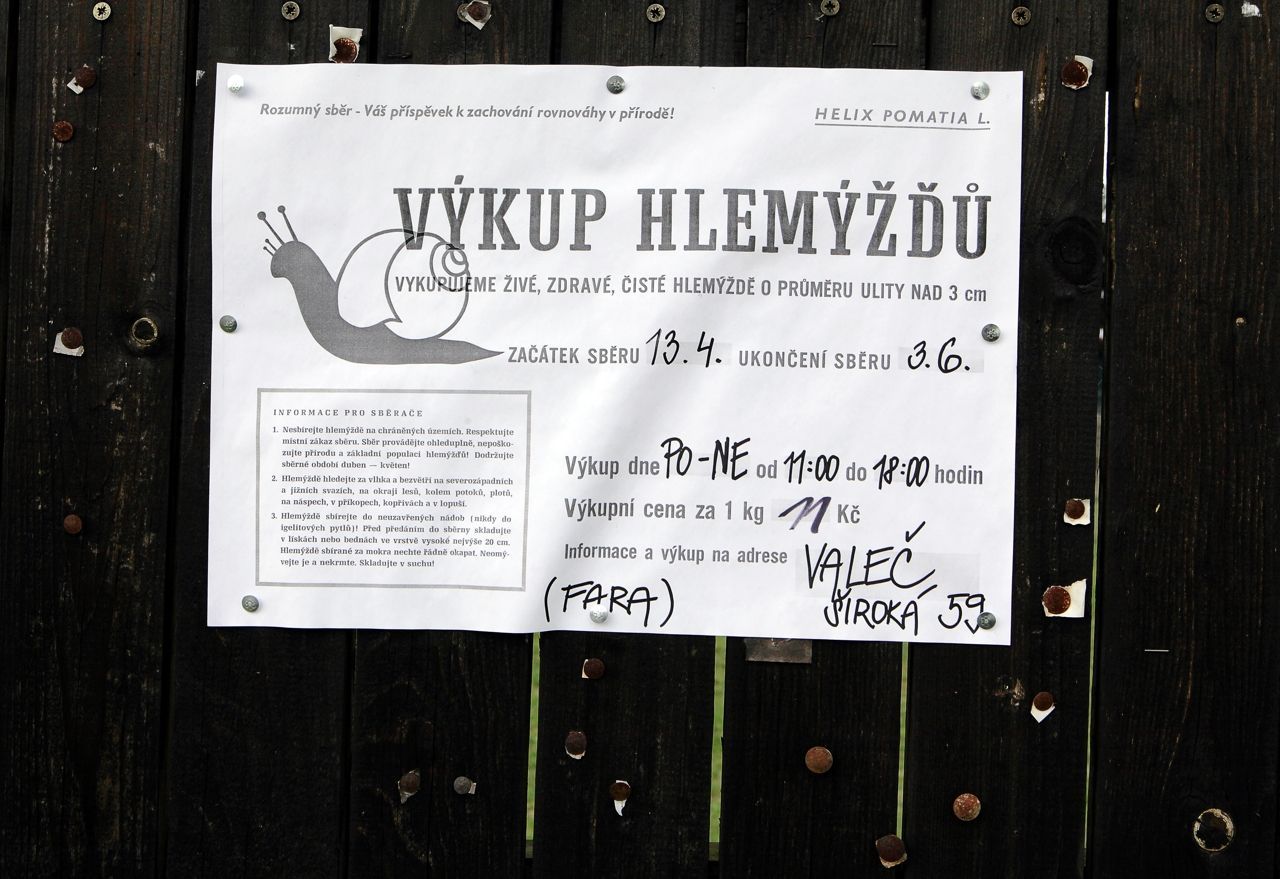 Rozumný sběr - Váš příspěvek k zachování rovnováhy v přírodě!
HELIX POMATIA L.
VÝKUP HLEMÝŽĎŮ
VYKUPUJEME ŽIVÉ, ZDRAVÉ, ČISTÉ HLEMÝŽDĚ O PRŮMĚRU ULITY NAD 3 cm
ZAČÁTEK SBĚRU 13.4. UKONČENÍ SBĚRU 3.6.
INFORMACE PRO SBĚRAČE
1. Nesbírejte hlemýždě na chráněných územích. Respektujte
místní zákaz sběru. Sběr provádějte ohleduplně, nepoško-
zujte přírodu a základní populaci hlemýžďů! Dodržujte
sběrné období duben — květen!
2. Hlemýždě hledejte za vlhka a bezvětří na severozápadních
a jižních svazích, na okraji lesů, kolem potoků, plotů,
na náspech, v příkopech, kopřivách a v lopuší.
3. Hlemýždě sbírejte do neuzavřených nádob (nikdy do
igelitových pytlů)! Před předáním do sběrny skladujte
v lískách nebo bednách ve vrstvě vysoké nejvýše 20 cm.
Hlemýždě sbírané za mokra nechte řádně okapat. Neomý-
vejte je a nekrmte. Skladujte v suchu!
Výkup dne PO-NE od 11:00 do 18:00 hodin
Výkupní cena za 1 kg 11 Kč
Informace a výkup na adrese VALEČ
(FARA) ŠIROKÁ 59